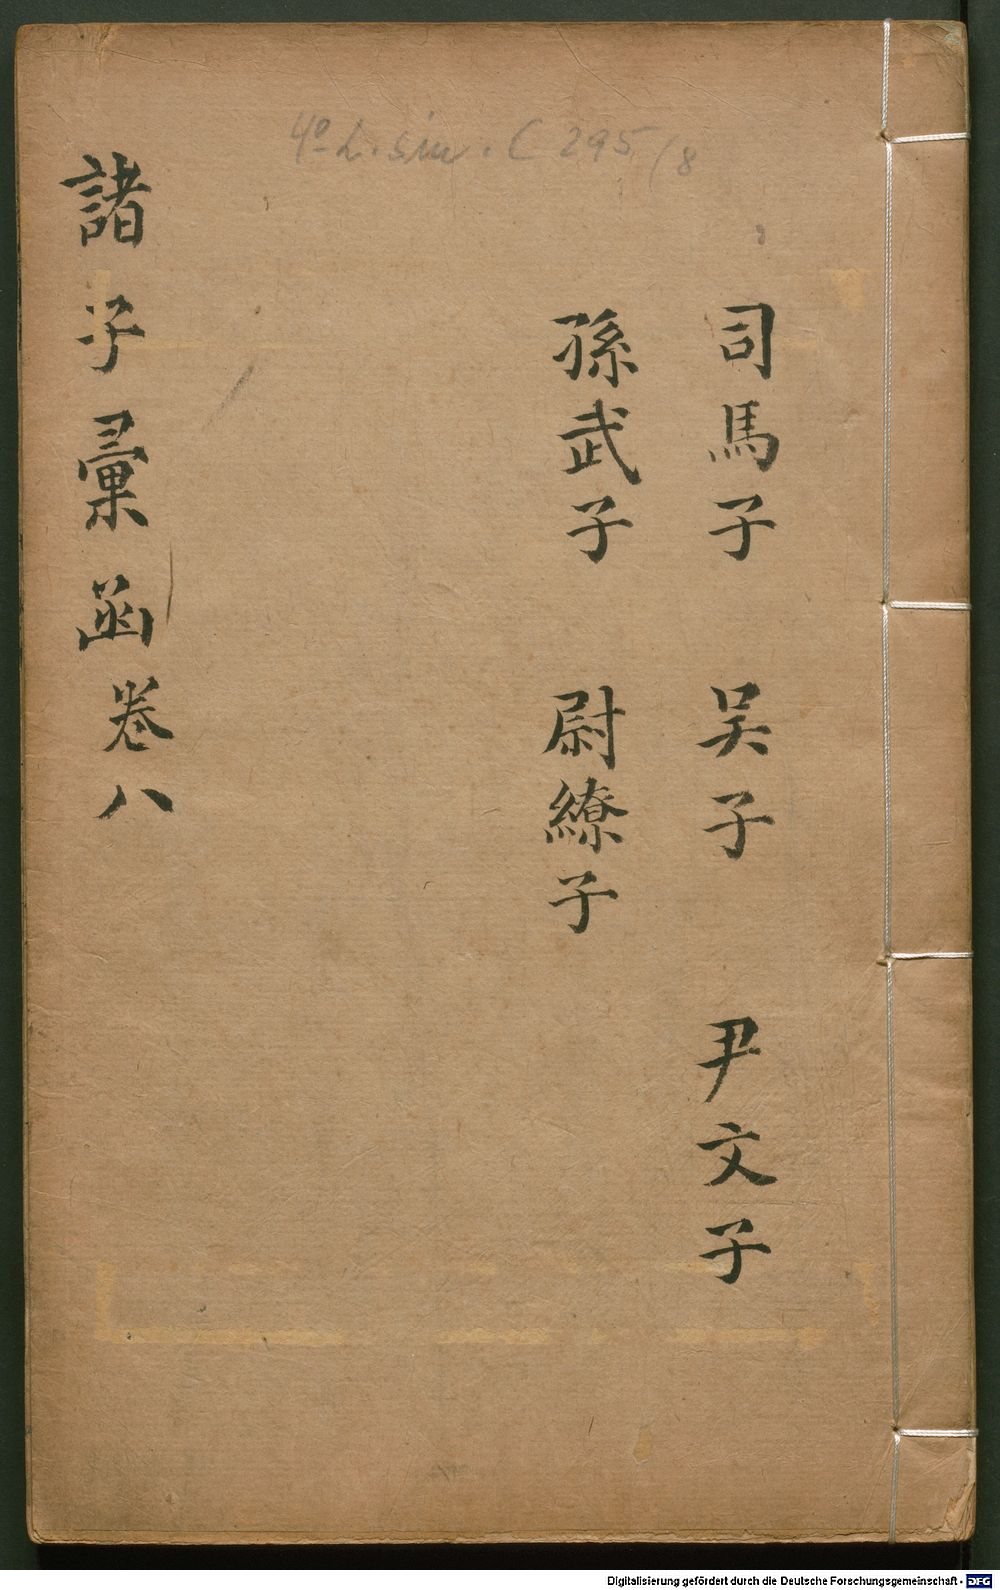 4º L. sin. C 295/8
司馬子 吴子 尹文子
孫武子 尉繚子
諸子彙函卷八
Digitalisierung gefördert durch die Deutsche Forschungsgemeinschaft - DFG